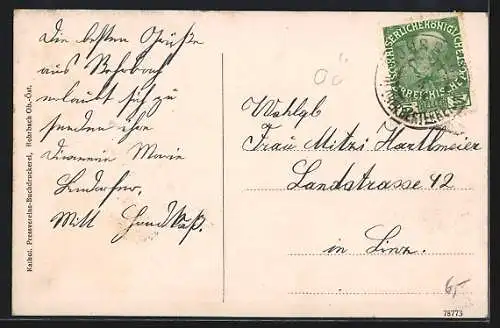 Die besten Grüße
aus Rohrbach
erlaubt sich zu
senden ihre
Dienerin Marie
Mitt Handkuß.
Kathol. Pressvereins-Buchdruckerei, Rohrbach Ob.-Öst.
KAISERLICHE KÖNIGLICHE ÖSTERREICHISCHE
OÖ
Wohlgb
Frau Mitzi Hartlmeier
Landstrasse 42
in Linz.
6,-
78773